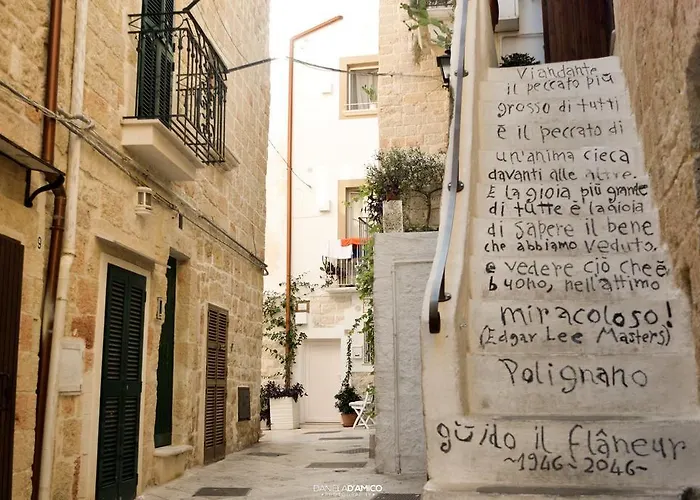 Viandante
il peccato più
grosso di tutti
è il peccato di
un'anima cieca
davanti alle altre.
E la gioia più grande
di tutte è la gioia
di sapere il bene
che abbiamo veduto,
e vedere ciò che è
buono, nell'attimo
miracoloso!
(Edgar Lee Masters)
Polignano
guido il flâneur
~1946~2046~
9
DANIELA D'AMICO